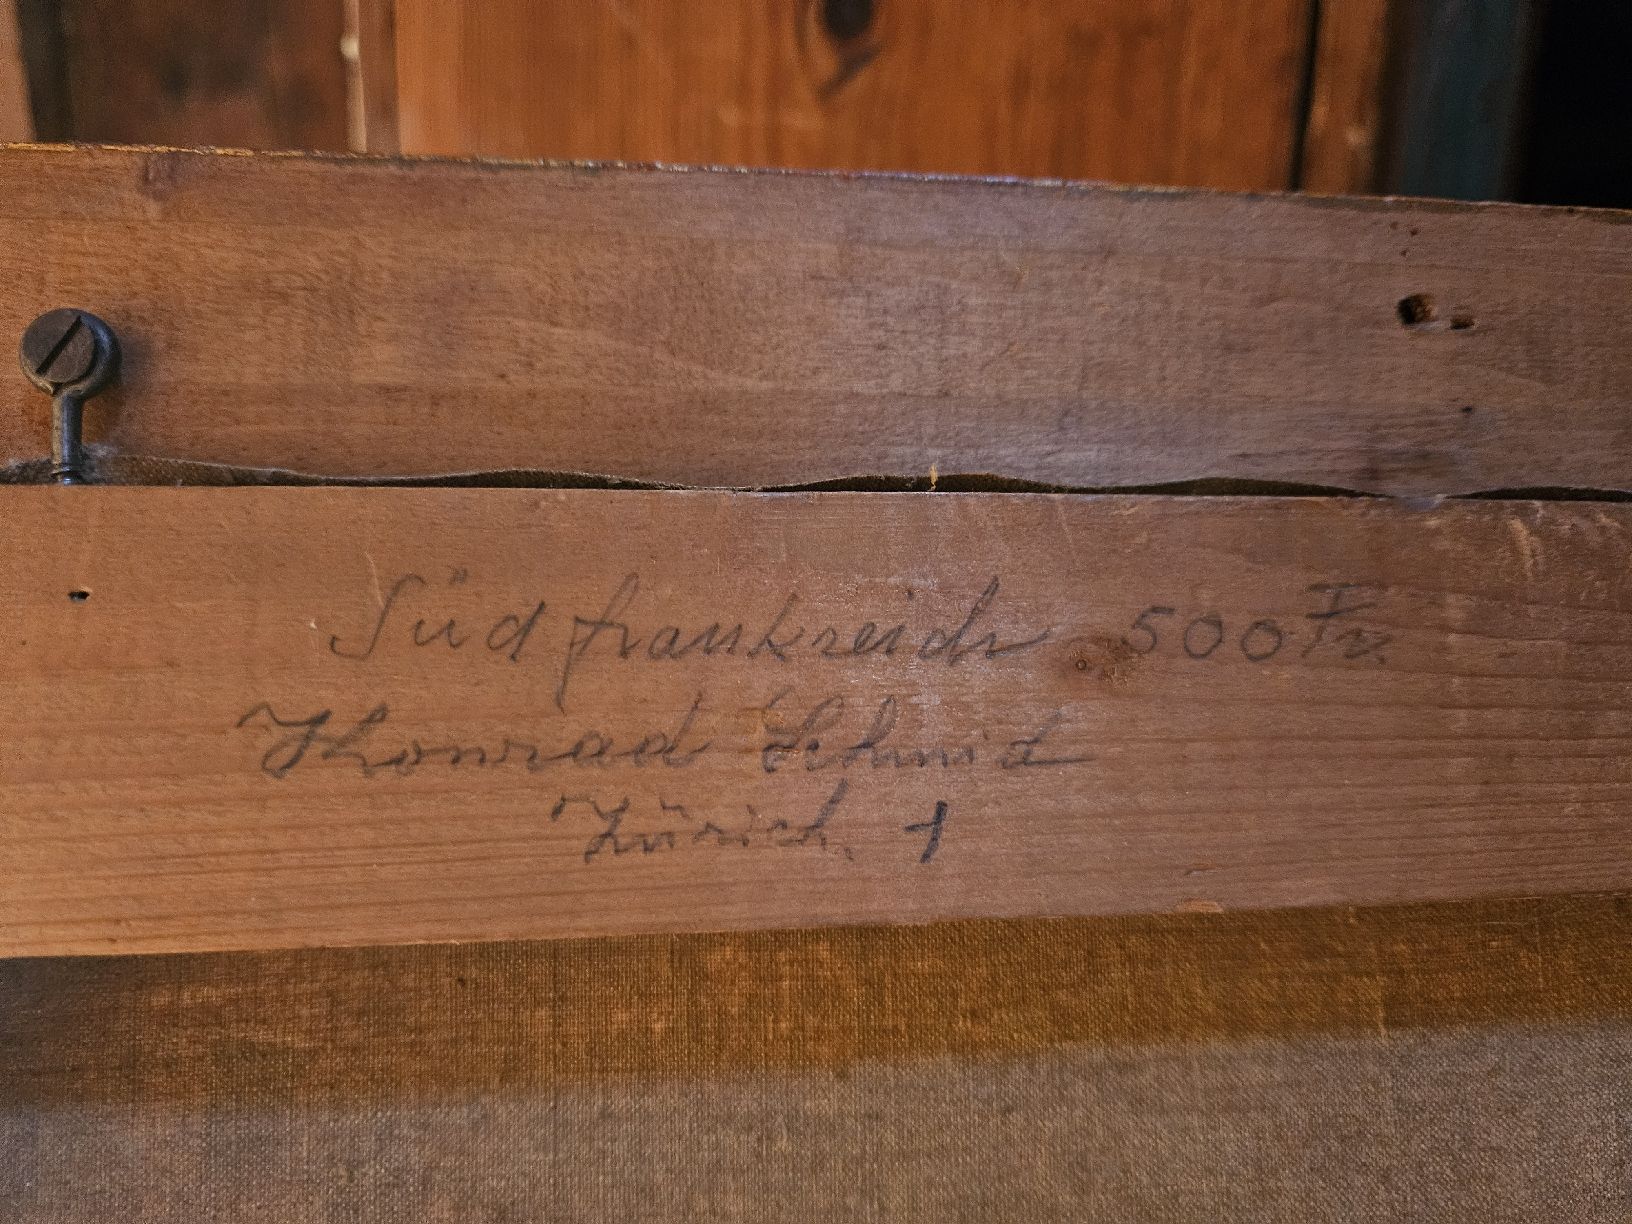 Südfrankreich 500 Fr.
Konrad Schmid
Zürich. 1